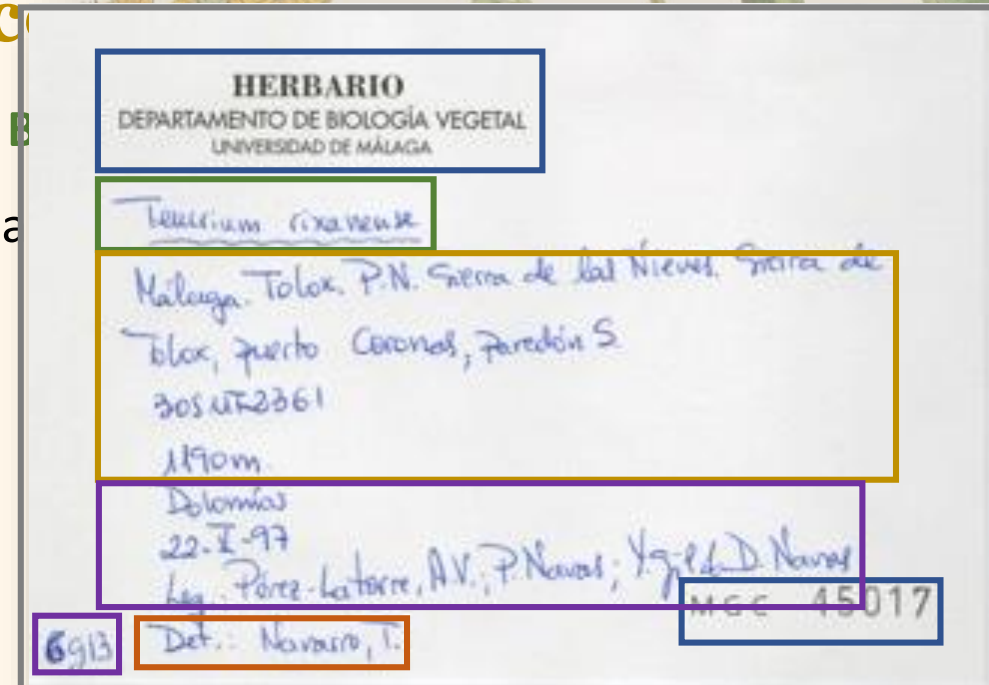 HERBARIO
DEPARTAMENTO DE BIOLOGÍA VEGETAL
UNIVERSIDAD DE MÁLAGA
Teucrium rixanense
Málaga. Tolox. P.N. Sierra de las Nieves. Sierra de
Tolox, puerto Coronas, paredón S.
30SUF2361
1190m
Dolomías
22-X-97
Leg.: Pérez-Latorre, A.V.; P. Navas; D. Navas
MGC 45017
6913 Det.: Navarro, T.